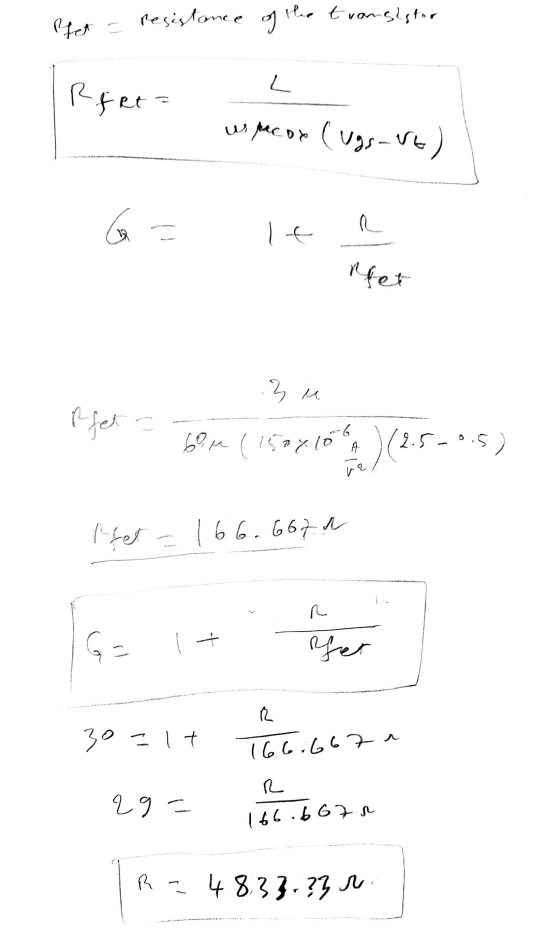 Rfet = resistance of the transistor
Rfet = L / wμcox (Vgs-Vt)
G = 1 + R / Rfet
Rfet = 3μ / 60μ (150x10^-6 A/V^2) (2.5-0.5)
Rfet = 166.667Ω
G = 1 + R / Rfet
30 = 1 + R / 166.667Ω
29 = R / 166.667Ω
R = 4833.33Ω.